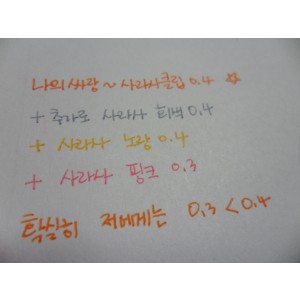 나의 싸랑 ~ 사라사클립 0.4 ☆
+ 추가로 사라사 회색 0.4
+ 사라사 노랑 0.4
+ 사라사 핑크 0.3
확실히 저에게는 0.3 < 0.4